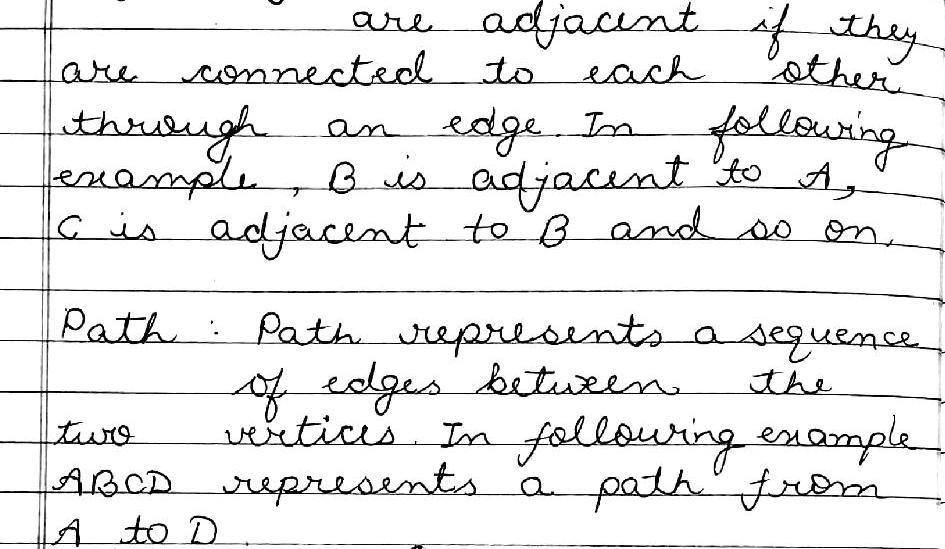 are adjacent if they
are connected to each other
through an edge. In following
example, B is adjacent to A,
C is adjacent to B and so on.
Path : Path represents a sequence
of edges between the
two vertices. In following example
ABCD represents a path from
A to D